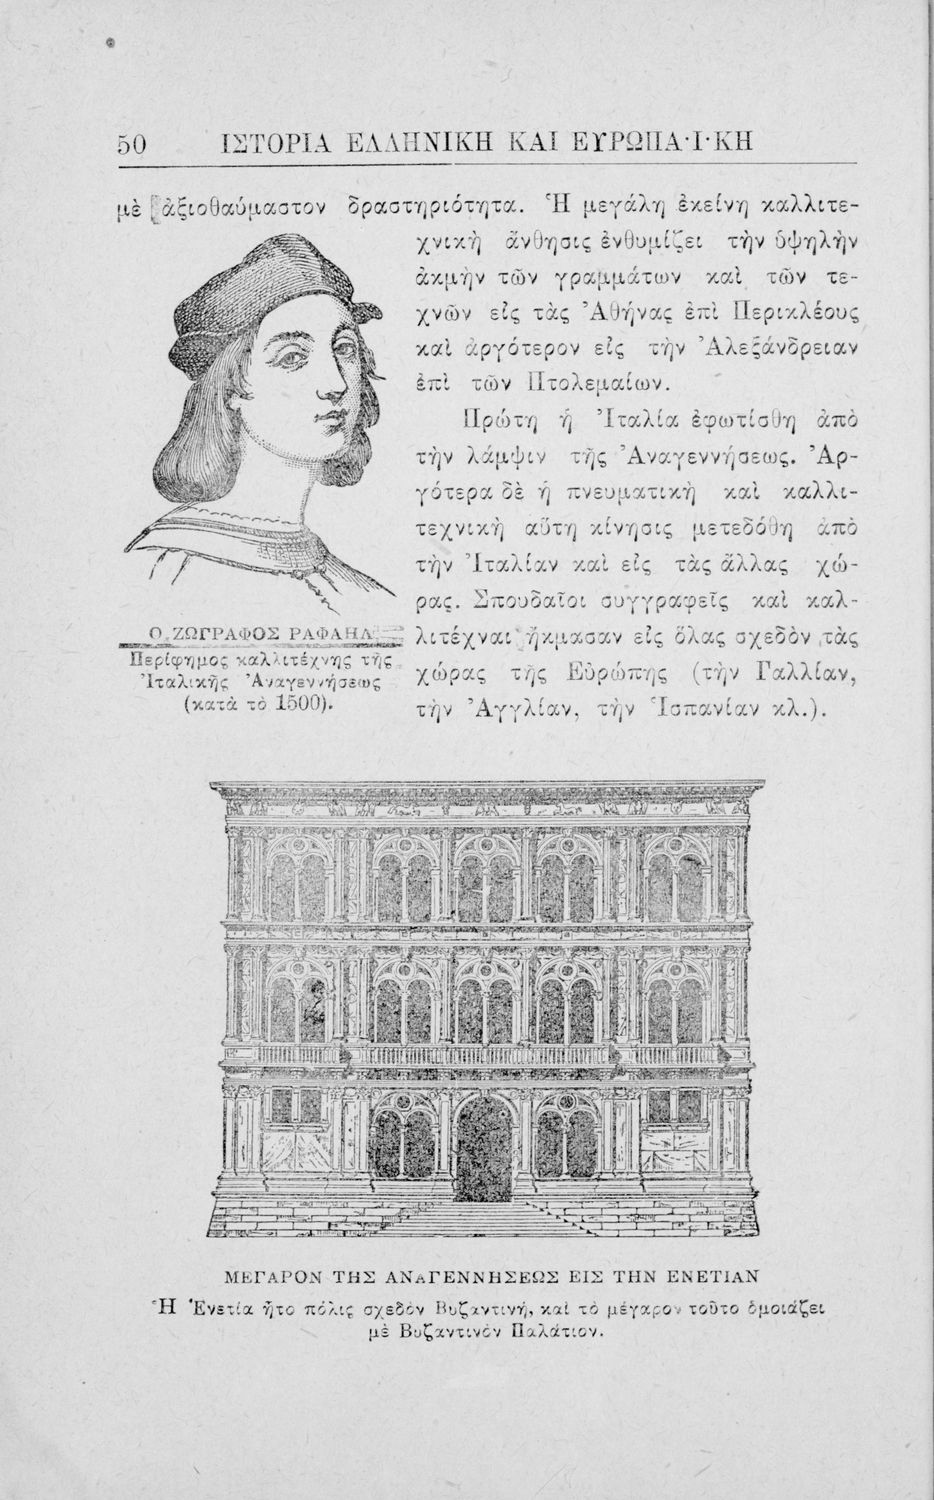 50 ΙΣΤΟΡΙΑ ΕΛΛΗΝΙΚΗ ΚΑΙ ΕΥΡΩΠΑ·Ι·ΚΗ
μὲ ἀξιοθαύμαστον δραστηριότητα. Ἡ μεγάλη ἐκείνη καλλιτε-
χνικὴ ἄνθησις ἐνθυμίζει τὴν ὑψηλὴν
ἀκμὴν τῶν γραμμάτων καὶ τῶν τε-
χνῶν εἰς τὰς Ἀθήνας ἐπὶ Περικλέους
καὶ ἀργότερον εἰς τὴν Ἀλεξάνδρειαν
ἐπὶ τῶν Πτολεμαίων.
Πρώτη ἡ Ἰταλία ἐφωτίσθη ἀπὸ
τὴν λάμψιν τῆς Ἀναγεννήσεως. Ἀρ-
γότερα δὲ ἡ πνευματικὴ καὶ καλλι-
τεχνικὴ αὕτη κίνησις μετεδόθη ἀπὸ
τὴν Ἰταλίαν καὶ εἰς τὰς ἄλλας χώ-
ρας. Σπουδαῖοι συγγραφεῖς καὶ καλ-
λιτέχναι ἤκμασαν εἰς ὅλας σχεδὸν τὰς
χώρας τῆς Εὐρώπης (τὴν Γαλλίαν,
τὴν Ἀγγλίαν, τὴν Ἱσπανίαν κλ.).
Ο ΖΩΓΡΑΦΟΣ ΡΑΦΑΗΛ
Περίφημος καλλιτέχνης τῆς
Ἰταλικῆς Ἀναγεννήσεως
(κατὰ τὸ 1500).
ΜΕΓΑΡΟΝ ΤΗΣ ΑΝΑΓΕΝΝΗΣΕΩΣ ΕΙΣ ΤΗΝ ΕΝΕΤΙΑΝ
Ἡ Ἑνετία ἦτο πόλις σχεδὸν Βυζαντινή, καὶ τὸ μέγαρον τοῦτο ὁμοιάζει
μὲ Βυζαντινὸν Παλάτιον.